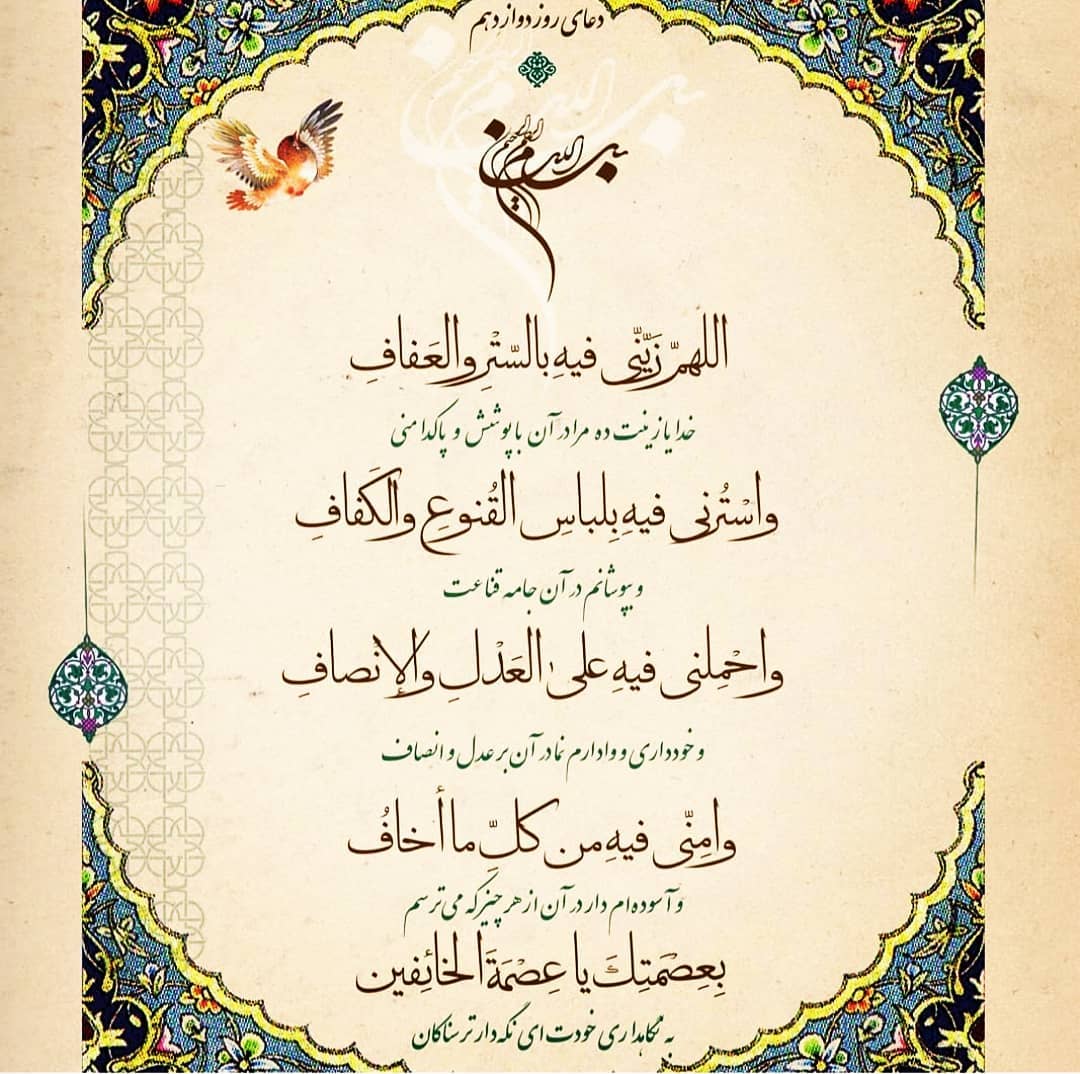 دعای روز دوازدهم
بسم الله الرحمن الرحیم
اللهمّ زَیّنّی فیهِ بالسّتْرِ والعَفافِ
خدایا زینت ده مرا در آن با پوشش و پاکدامنی
واسْتُرنی فیهِ بِلِباسِ القُنوعِ والکَفافِ
و بپوشانم در آن جامه قناعت
واحْمِلنی فیهِ علیٰ العَدْلِ والإنْصافِ
و خودداری و وادارم نما در آن بر عدل و انصاف
وامِنّی فیهِ من کلِّ ما أخافُ
و آسوده‌ام دار در آن از هر چیز که می ترسم
بِعِصْمَتِكَ یا عِصْمَةَ الخائِفین
به نگاهداری خودت ای نگه‌دار ترسناکان